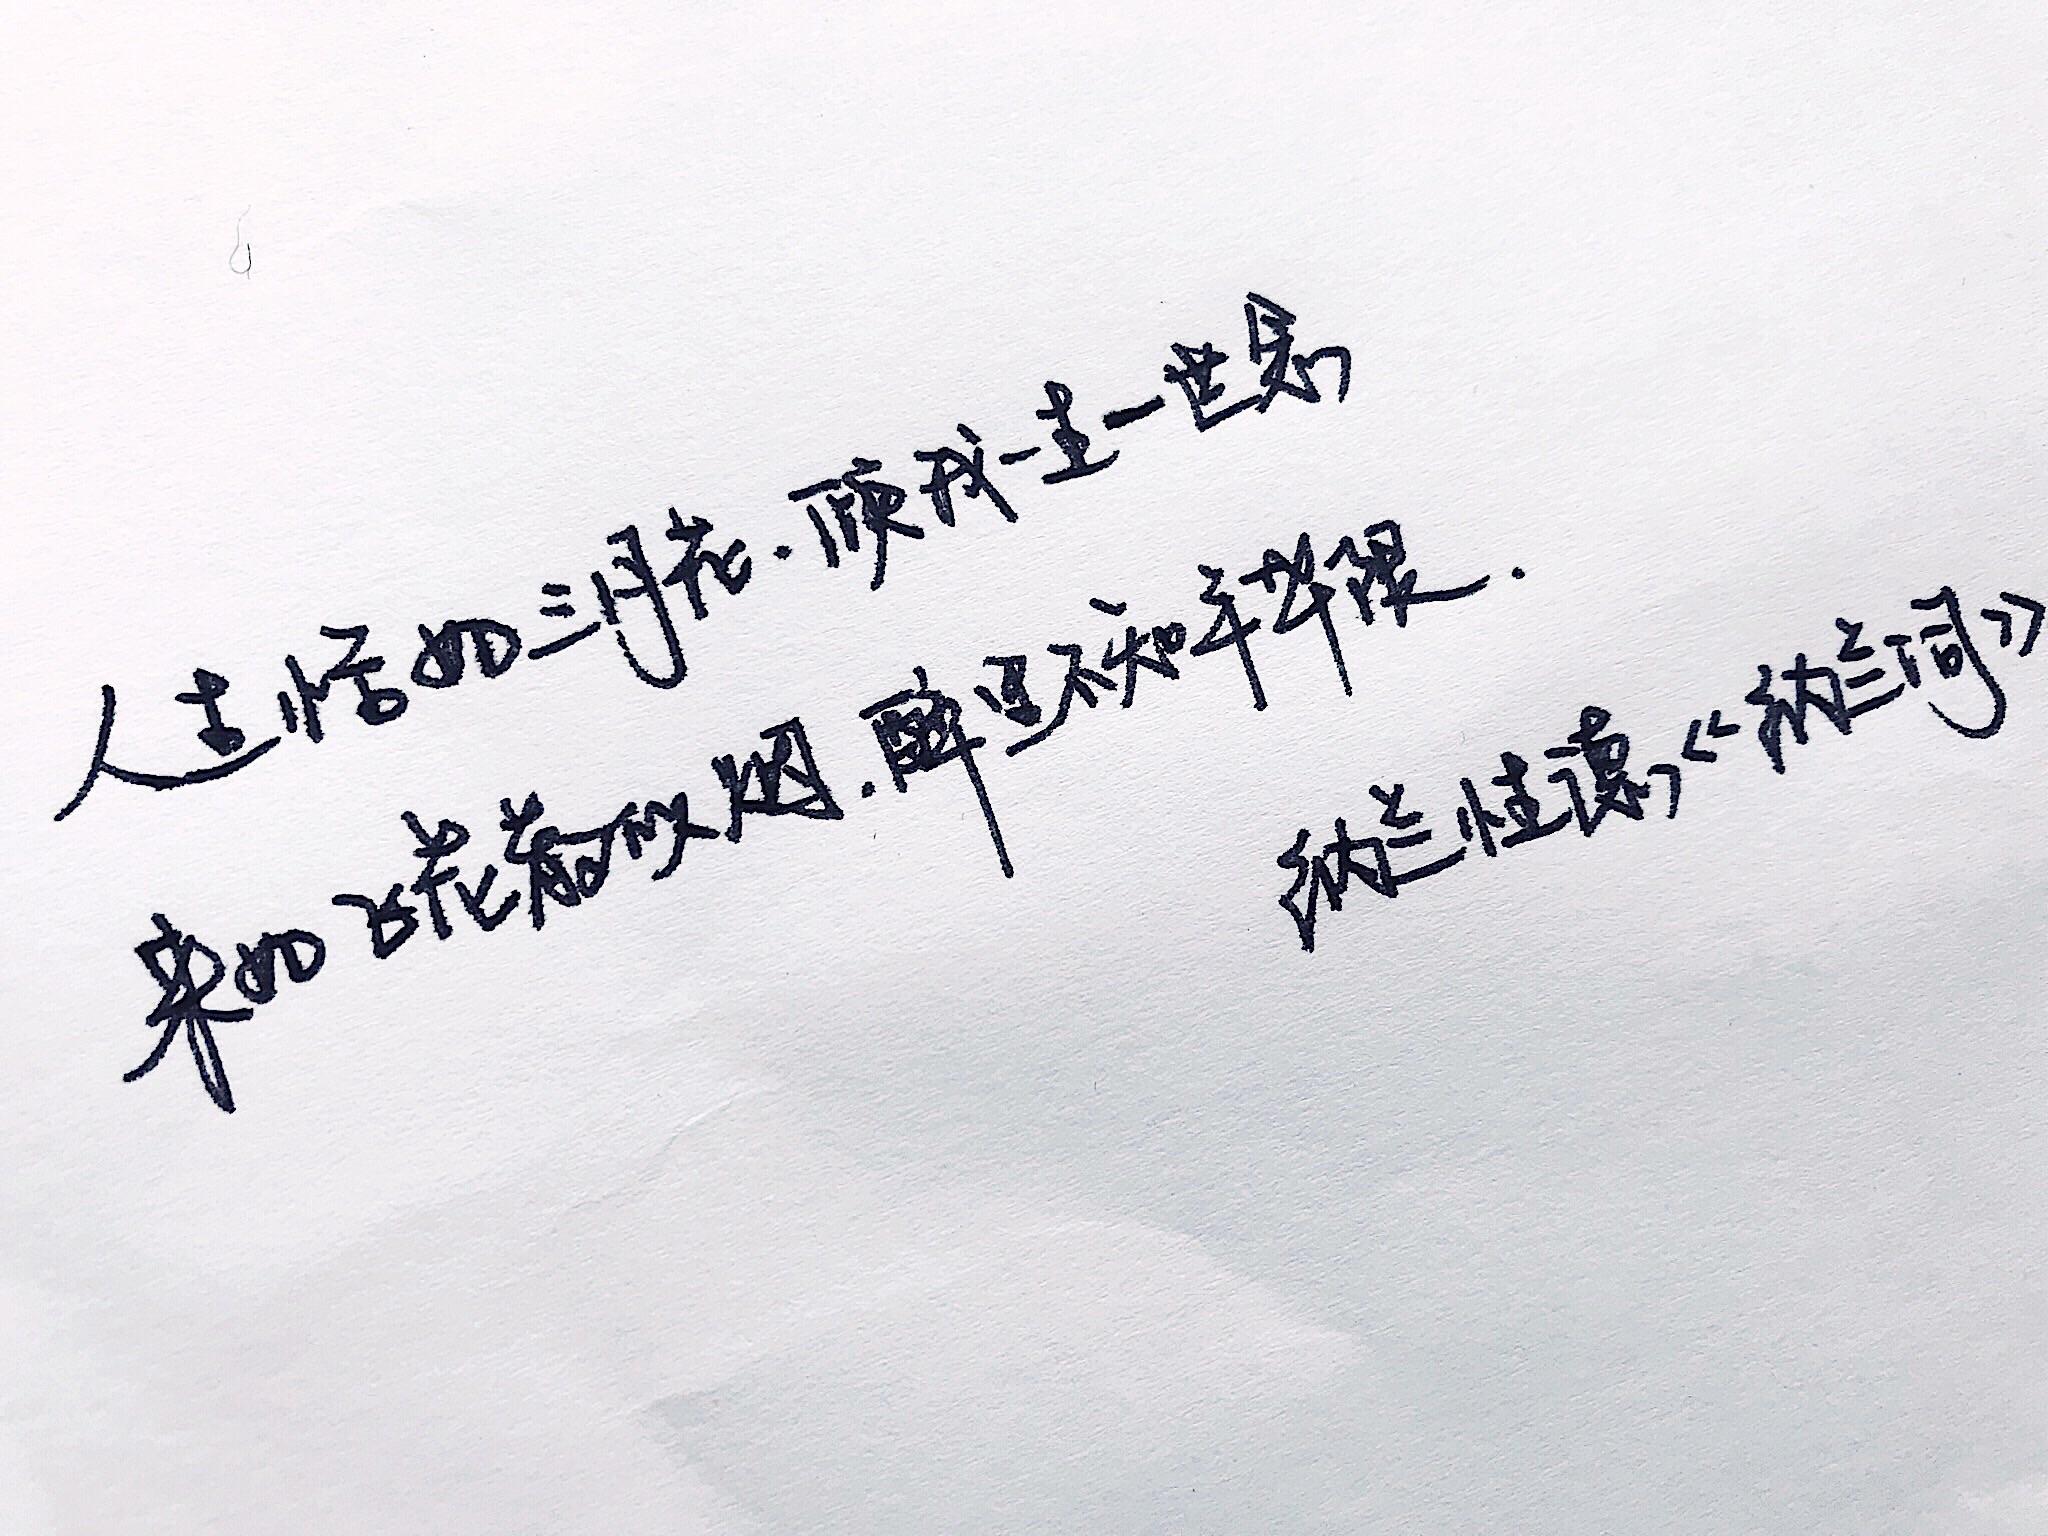 人生恰如三月花.倾我一生一世念
来如飞花散似烟.醉里不知年华限.
纳兰性德《纳兰词》